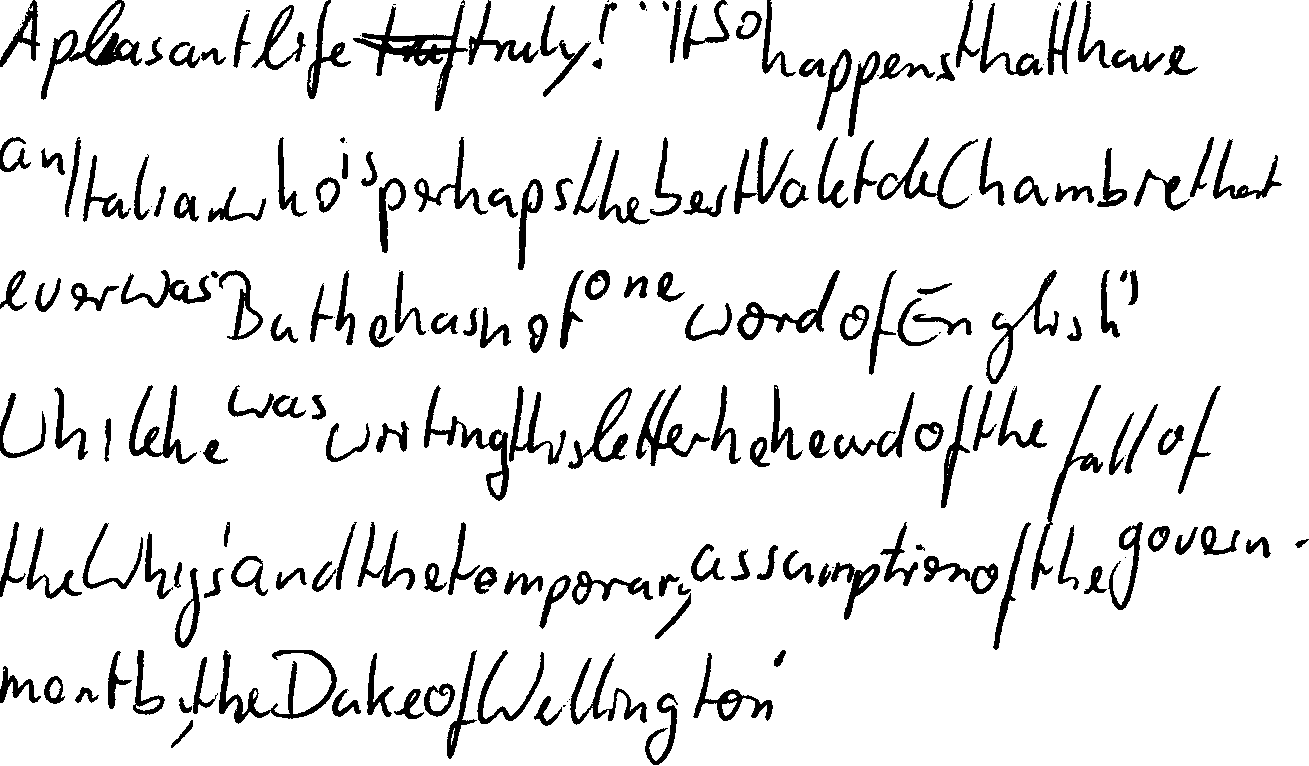 A pleasant life truly! "It so happens that I have
an Italian who is perhaps the best Valet de Chambre that
ever was. But he has not one word of English."
While he was writing this letter he heard of the fall of
the Whigs and the temporary assumption of the govern-
ment by the Duke of Wellington.